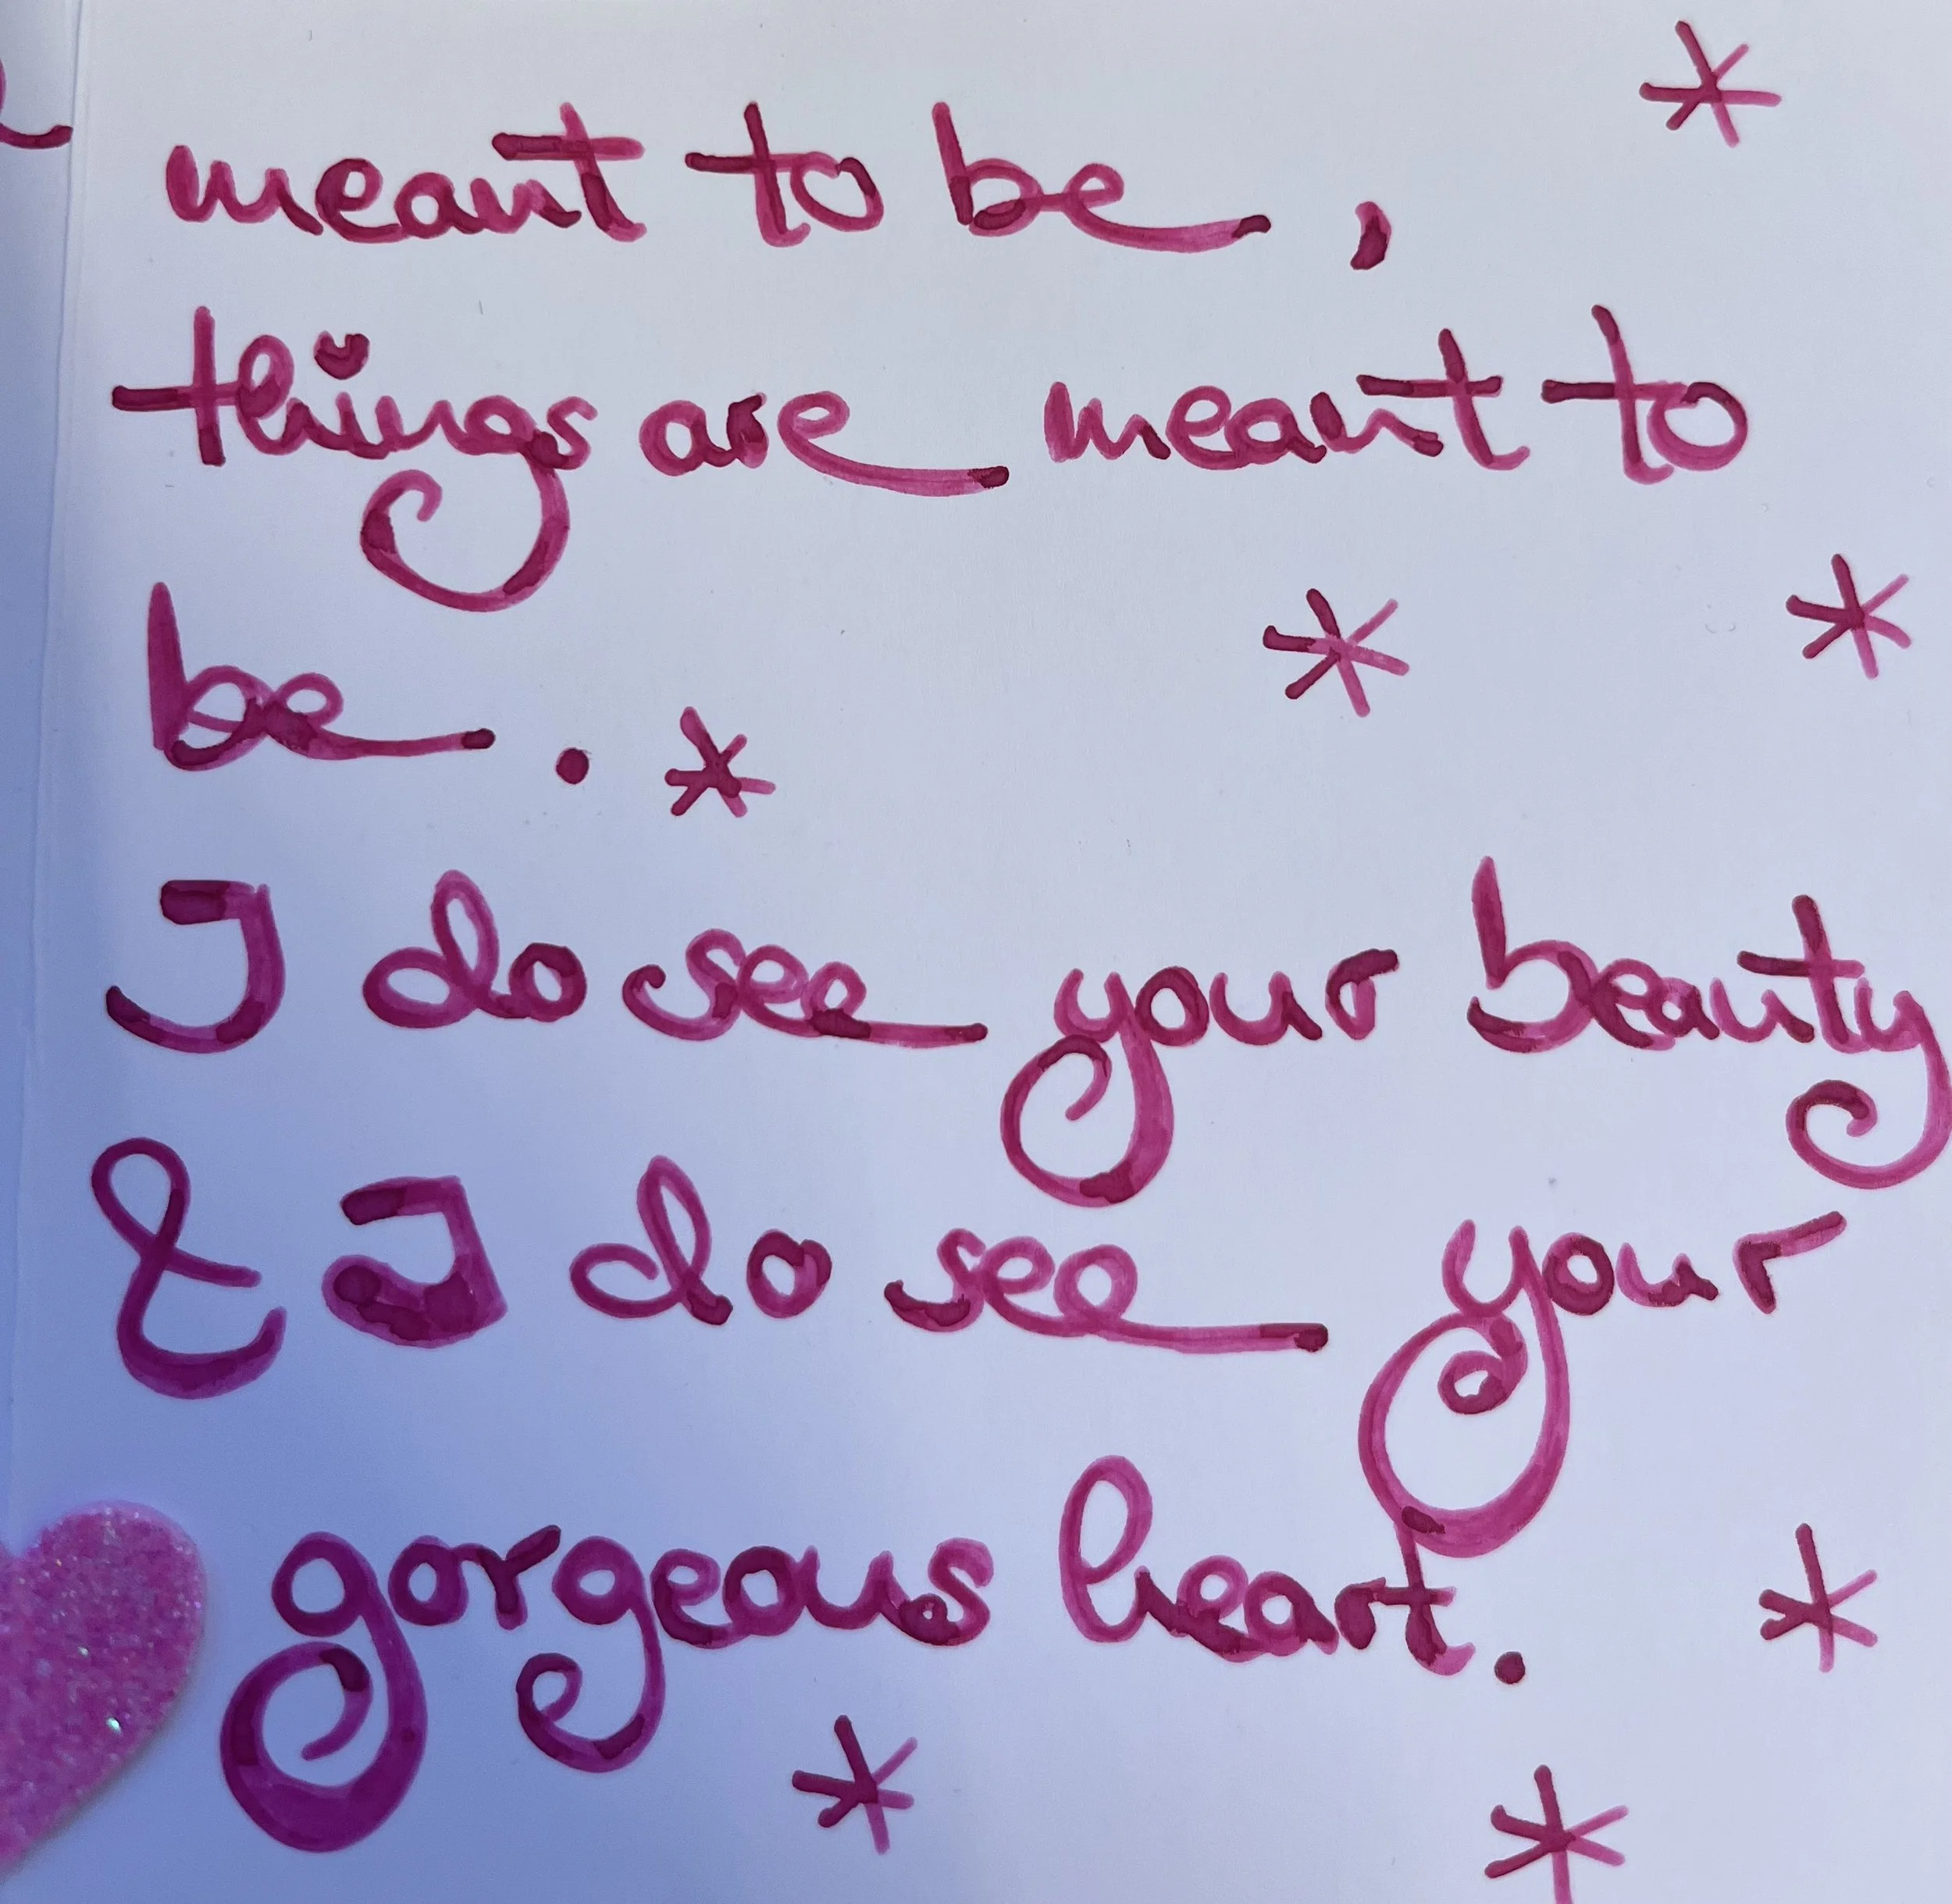 meant to be,
things are meant to
be.
I do see your beauty
& I do see your
gorgeous heart.